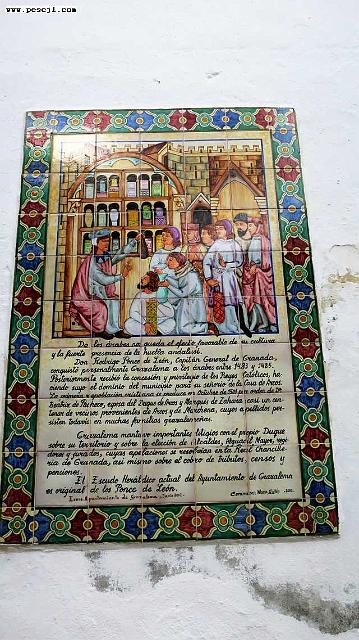 www.pescj1.com
De los árabes nos queda el efecto favorable de su cultura
y la fuerte presencia de la huella andalusí.
Don Rodrigo Ponce de León, Capitán General de Granada,
conquistó personalmente Grazalema a los árabes entre 1483 y 1485.
Posteriormente recibió la concesión y privilegio de los Reyes Católicos, ha
ciendo suyo el dominio del municipio para su señorío de la Casa de Arcos.
La primera repoblación cristiana se produce en Octubre de
Beatriz de Pacheco, esposa del Duque de Arcos y Marqués de Zahara casi un cen
tenar de vecinos provenientes de Arcos y de Marchena, cuyos apellidos per
sisten todavía en muchas familias grazalemeñas.
Grazalema mantuvo importantes litigios con el propio Duque
sobre su territorio y sobre la elección de Alcaldes, Alguacil Mayor, regi
dores y jurados, cuyas apelaciones se resolvían en la Real Chancille
ría de Granada, así mismo sobre el cobro de tributos, censos y
pensiones.
El Escudo Heráldico actual del Ayuntamiento de Grazalema
es original de los Ponce de León.